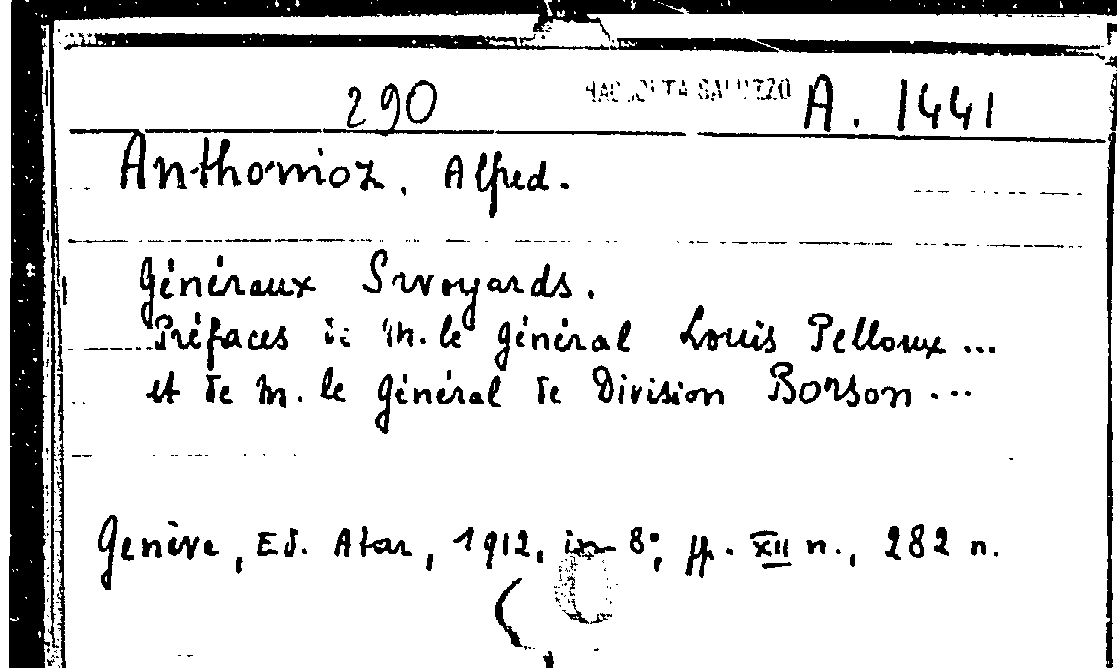 290 RACCOLTA SALUZZO A. 1441
Anthonioz, Alfred.
Généraux Savoyards.
Préfaces de M. le Général Louis Pelloux ...
et de M. le Général de Division Borson ...
Genève, Ed. Atar, 1912, in 8°, pp. XII n., 282 n.